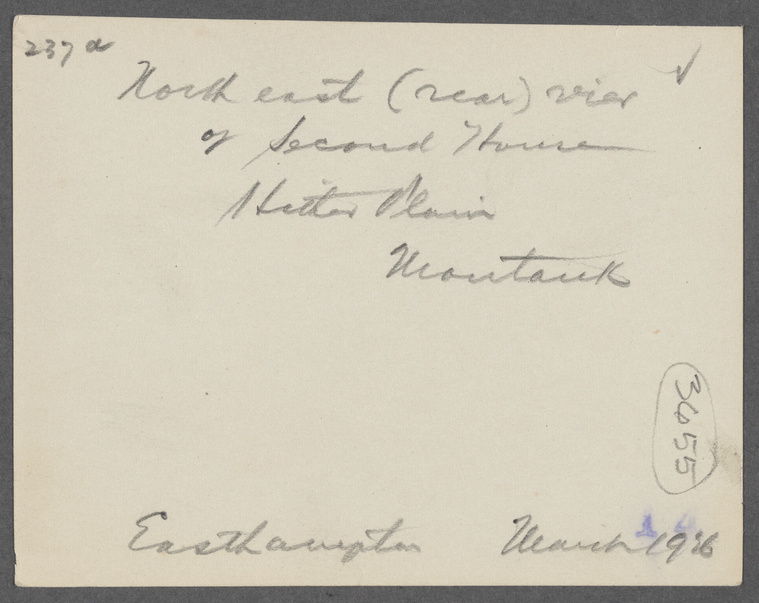 237 a
North east (rear) view
of Second House
Hither Plain
Montauk
3655
Easthampton March 1926